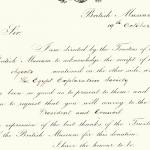 British Museum
19th October
Sir,
I am directed by the Trustees of
British Museum to acknowledge the receipt of
objects mentioned in the other side, w
The Egypt Exploration Society
been so good as to present to them; and
to request that you will convey to the
President and Council
expression of the best thanks of the Trustees
the British Museum for this donation.
I have the honour to be,